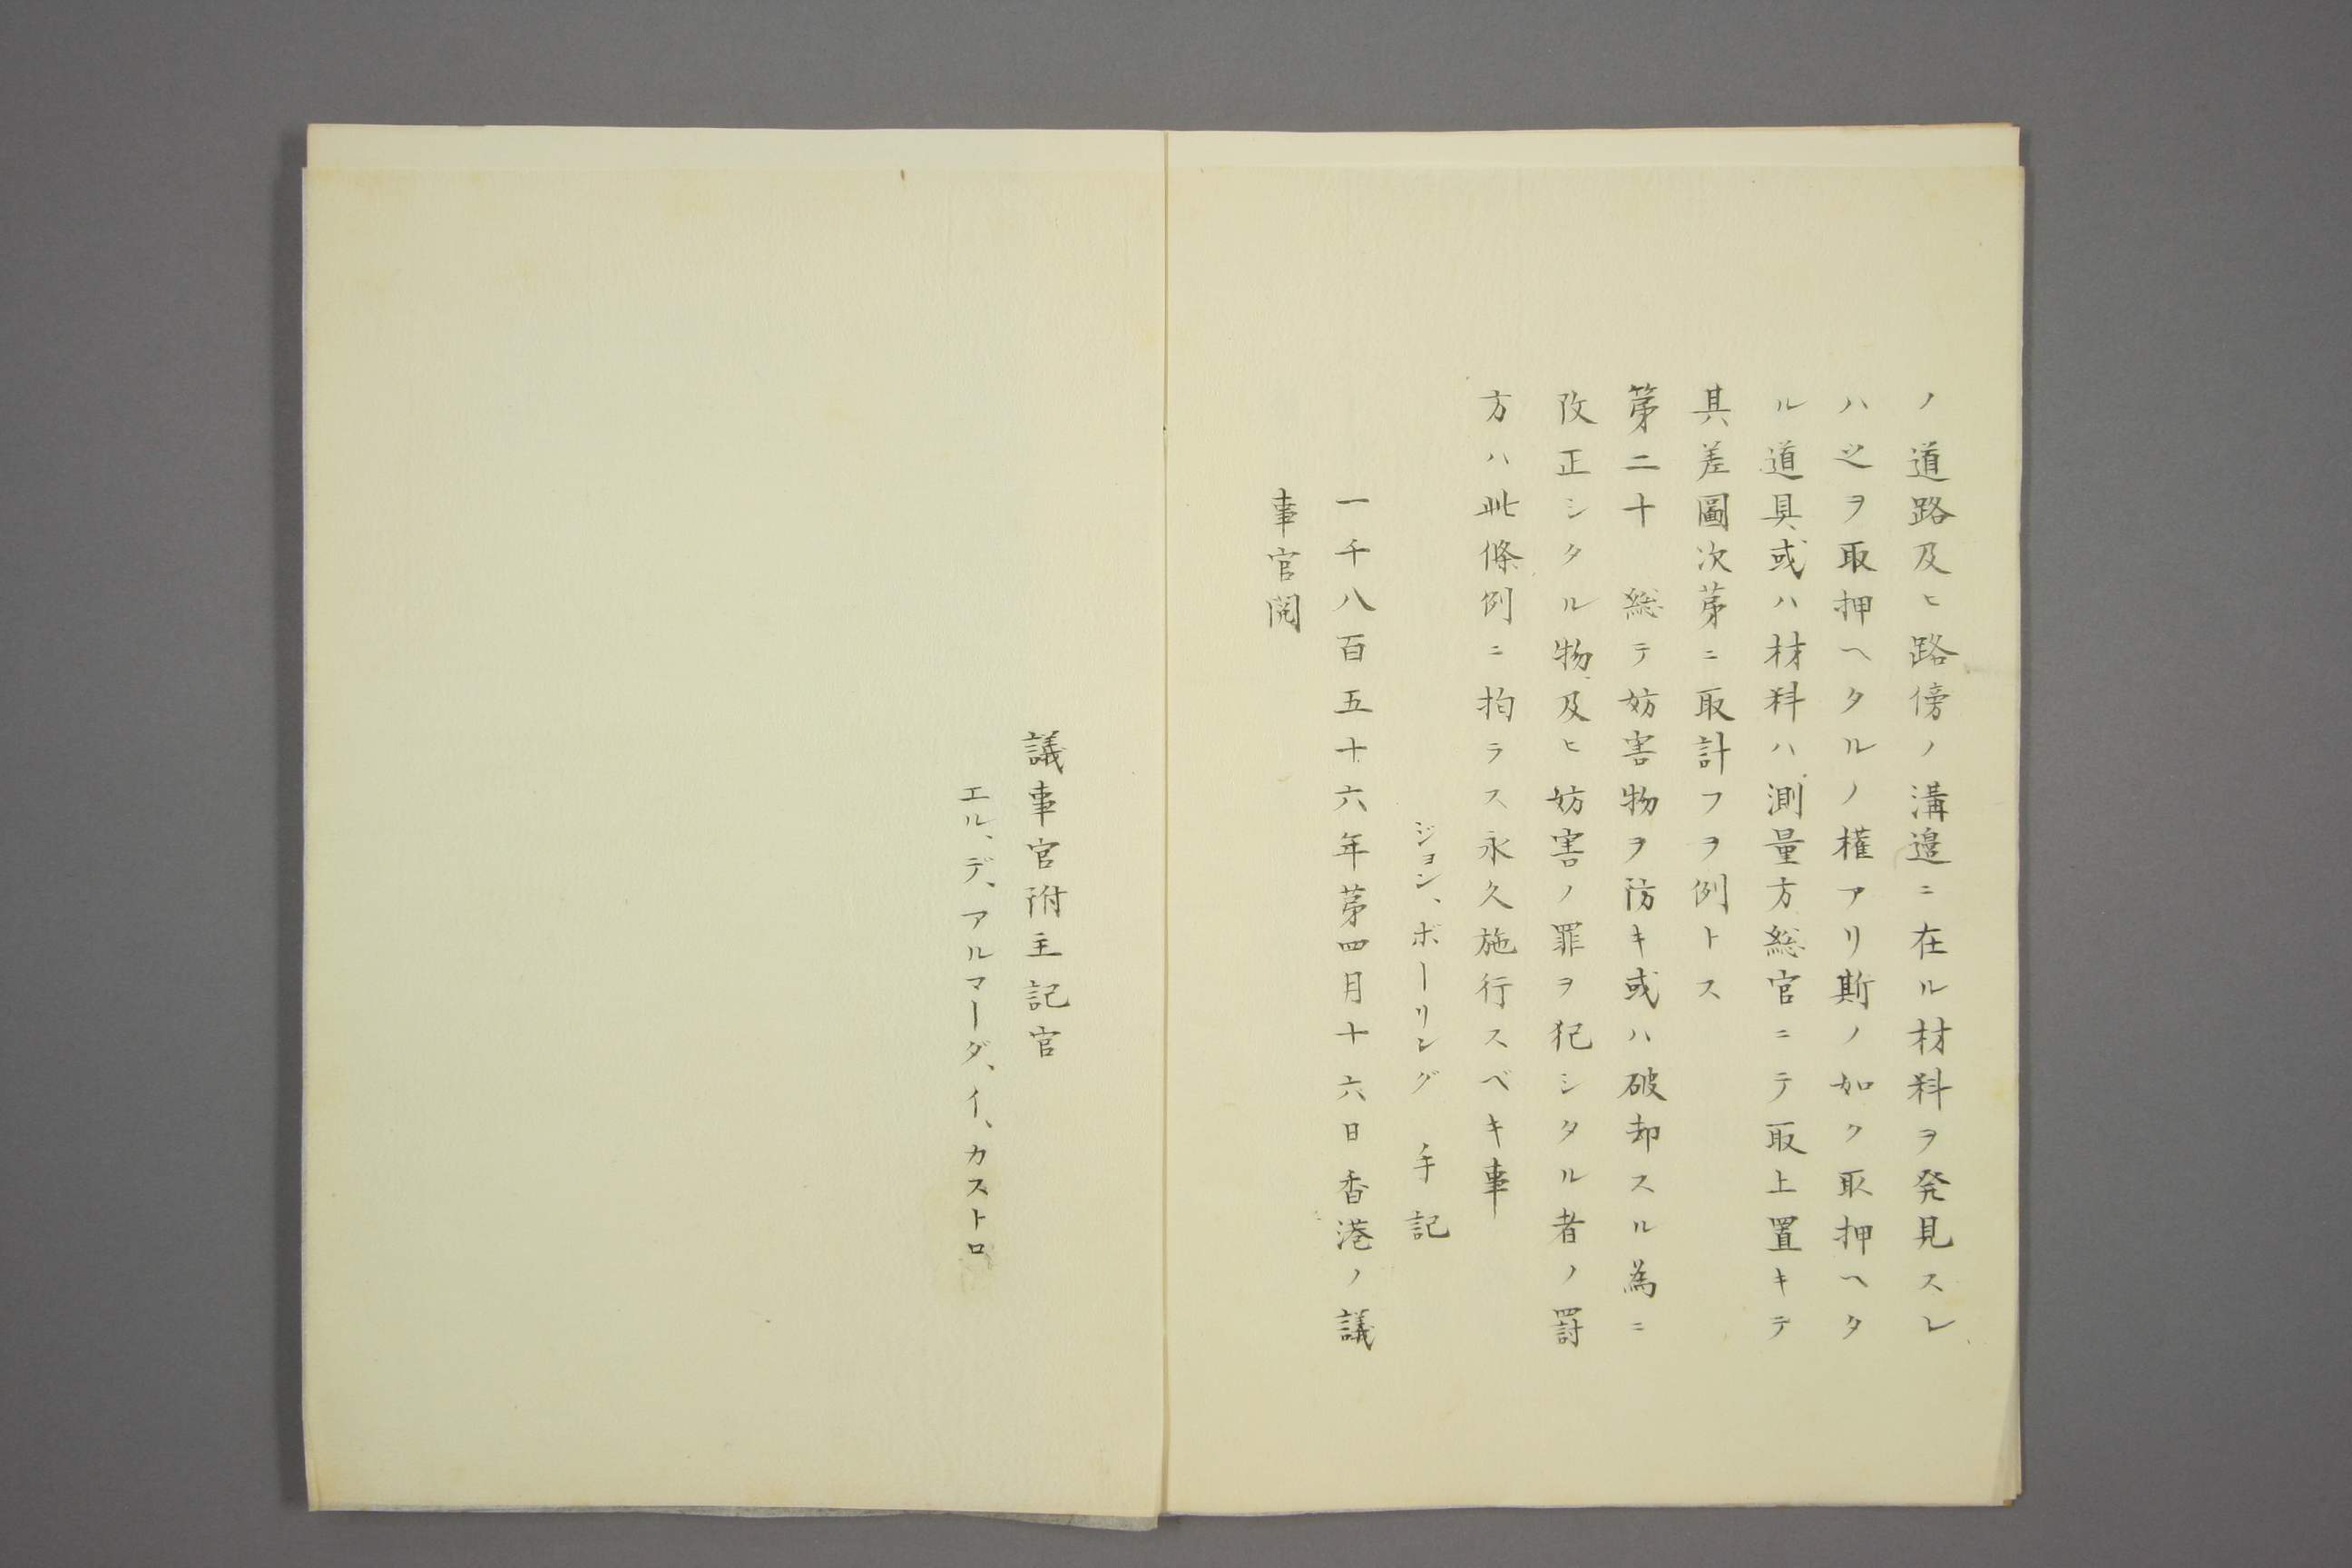 ノ道路及ヒ路傍ノ溝邉ニ在ル材料ヲ発見スレ
ハ之ヲ取押ヘタルノ権アリ斯ノ如ク取押ヘタ
ル道具或ハ材料ハ測量方総官ニテ取上置キテ
其差圖次第ニ取計フヲ例トス
第二十　総テ妨害物ヲ防キ或ハ破却スル為ニ
改正シタル物及ヒ妨害ノ罪ヲ犯シタル者ノ罰
方ハ此條例ニ拘ラス永久施行スベキ事
ジョン、ボーリング　手記
一千八百五十六年第四月十六日香港ノ議
事官閲
議事官附主記官
エル、デ、アルマーダ、イ、カストロ